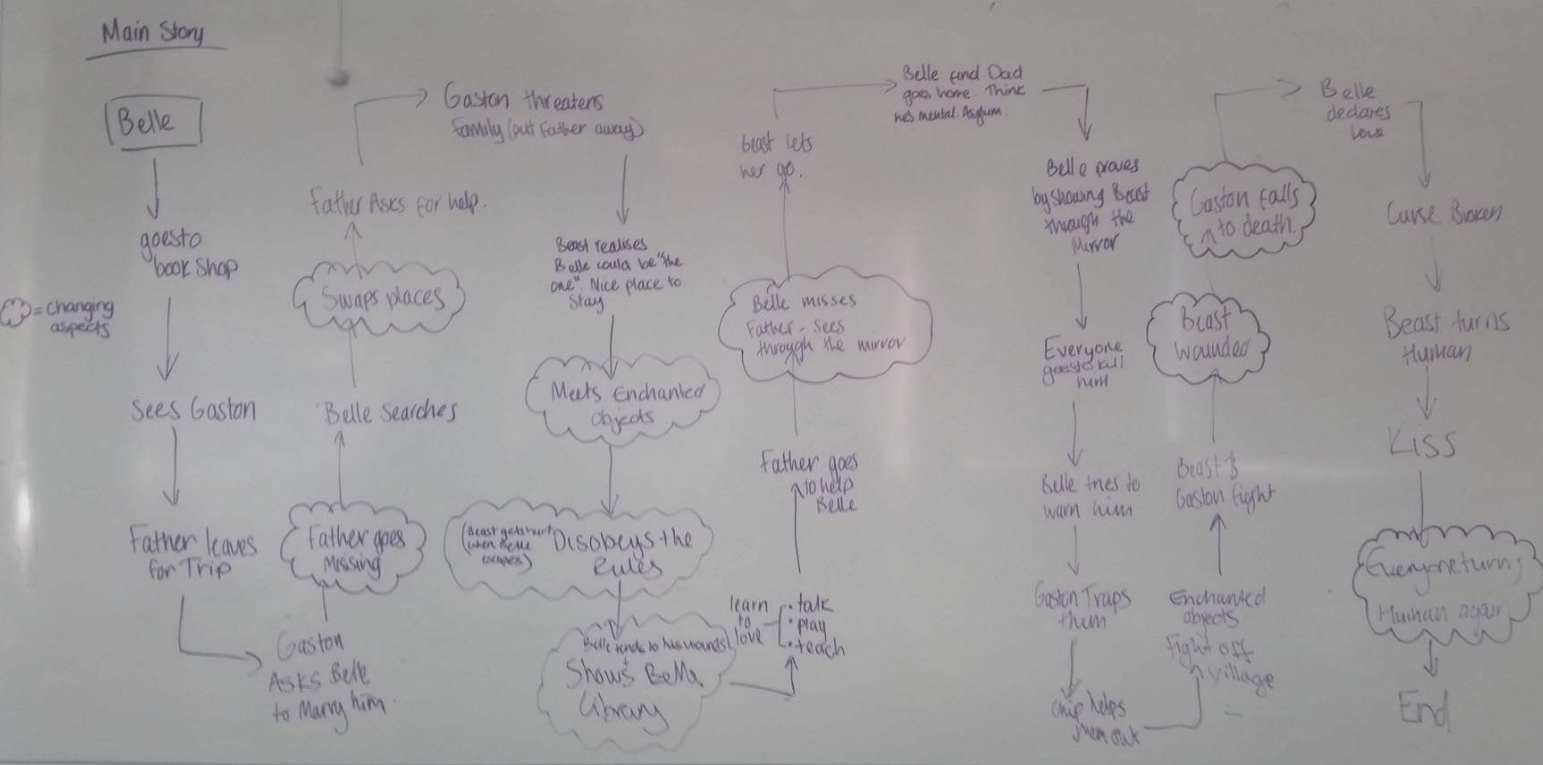 Main Story
Belle
goes to
book shop
= changing
aspects
Sees Gaston
Father leaves
for Trip
Gaston
Asks Belle
to Marry him.
Father goes
Missing
Belle Searches
Swaps places
Father Asks for help.
Gaston threatens
family (put Father away)
Beast realises
Belle could be "the
one". Nice place to
Stay
Meets Enchanted
Objects
(Beast gets hurt
when Belle
escapes)
Disobeys the
Rules
Belle tends to his wounds
Shows Belle
Library
learn
to
love
• talk
• play
• teach
Father goes
to help
Belle
Belle misses
Father - sees
through the mirror
Beast lets
her go.
Belle find Dad
goes home. Think
he's mental. Asylum.
Belle proves
by showing Beast
through the
Mirror
Everyone
goes to kill
him
Belle tries to
warn him
Gaston Traps
them
Chip helps
them out
Enchanted
objects
fight off
village
Beast &
Gaston fight
Beast
wounded
Gaston falls
to death.
Belle
declares
love
Curse Broken
Beast turns
Human
Kiss
Everyone turns
Human again
End